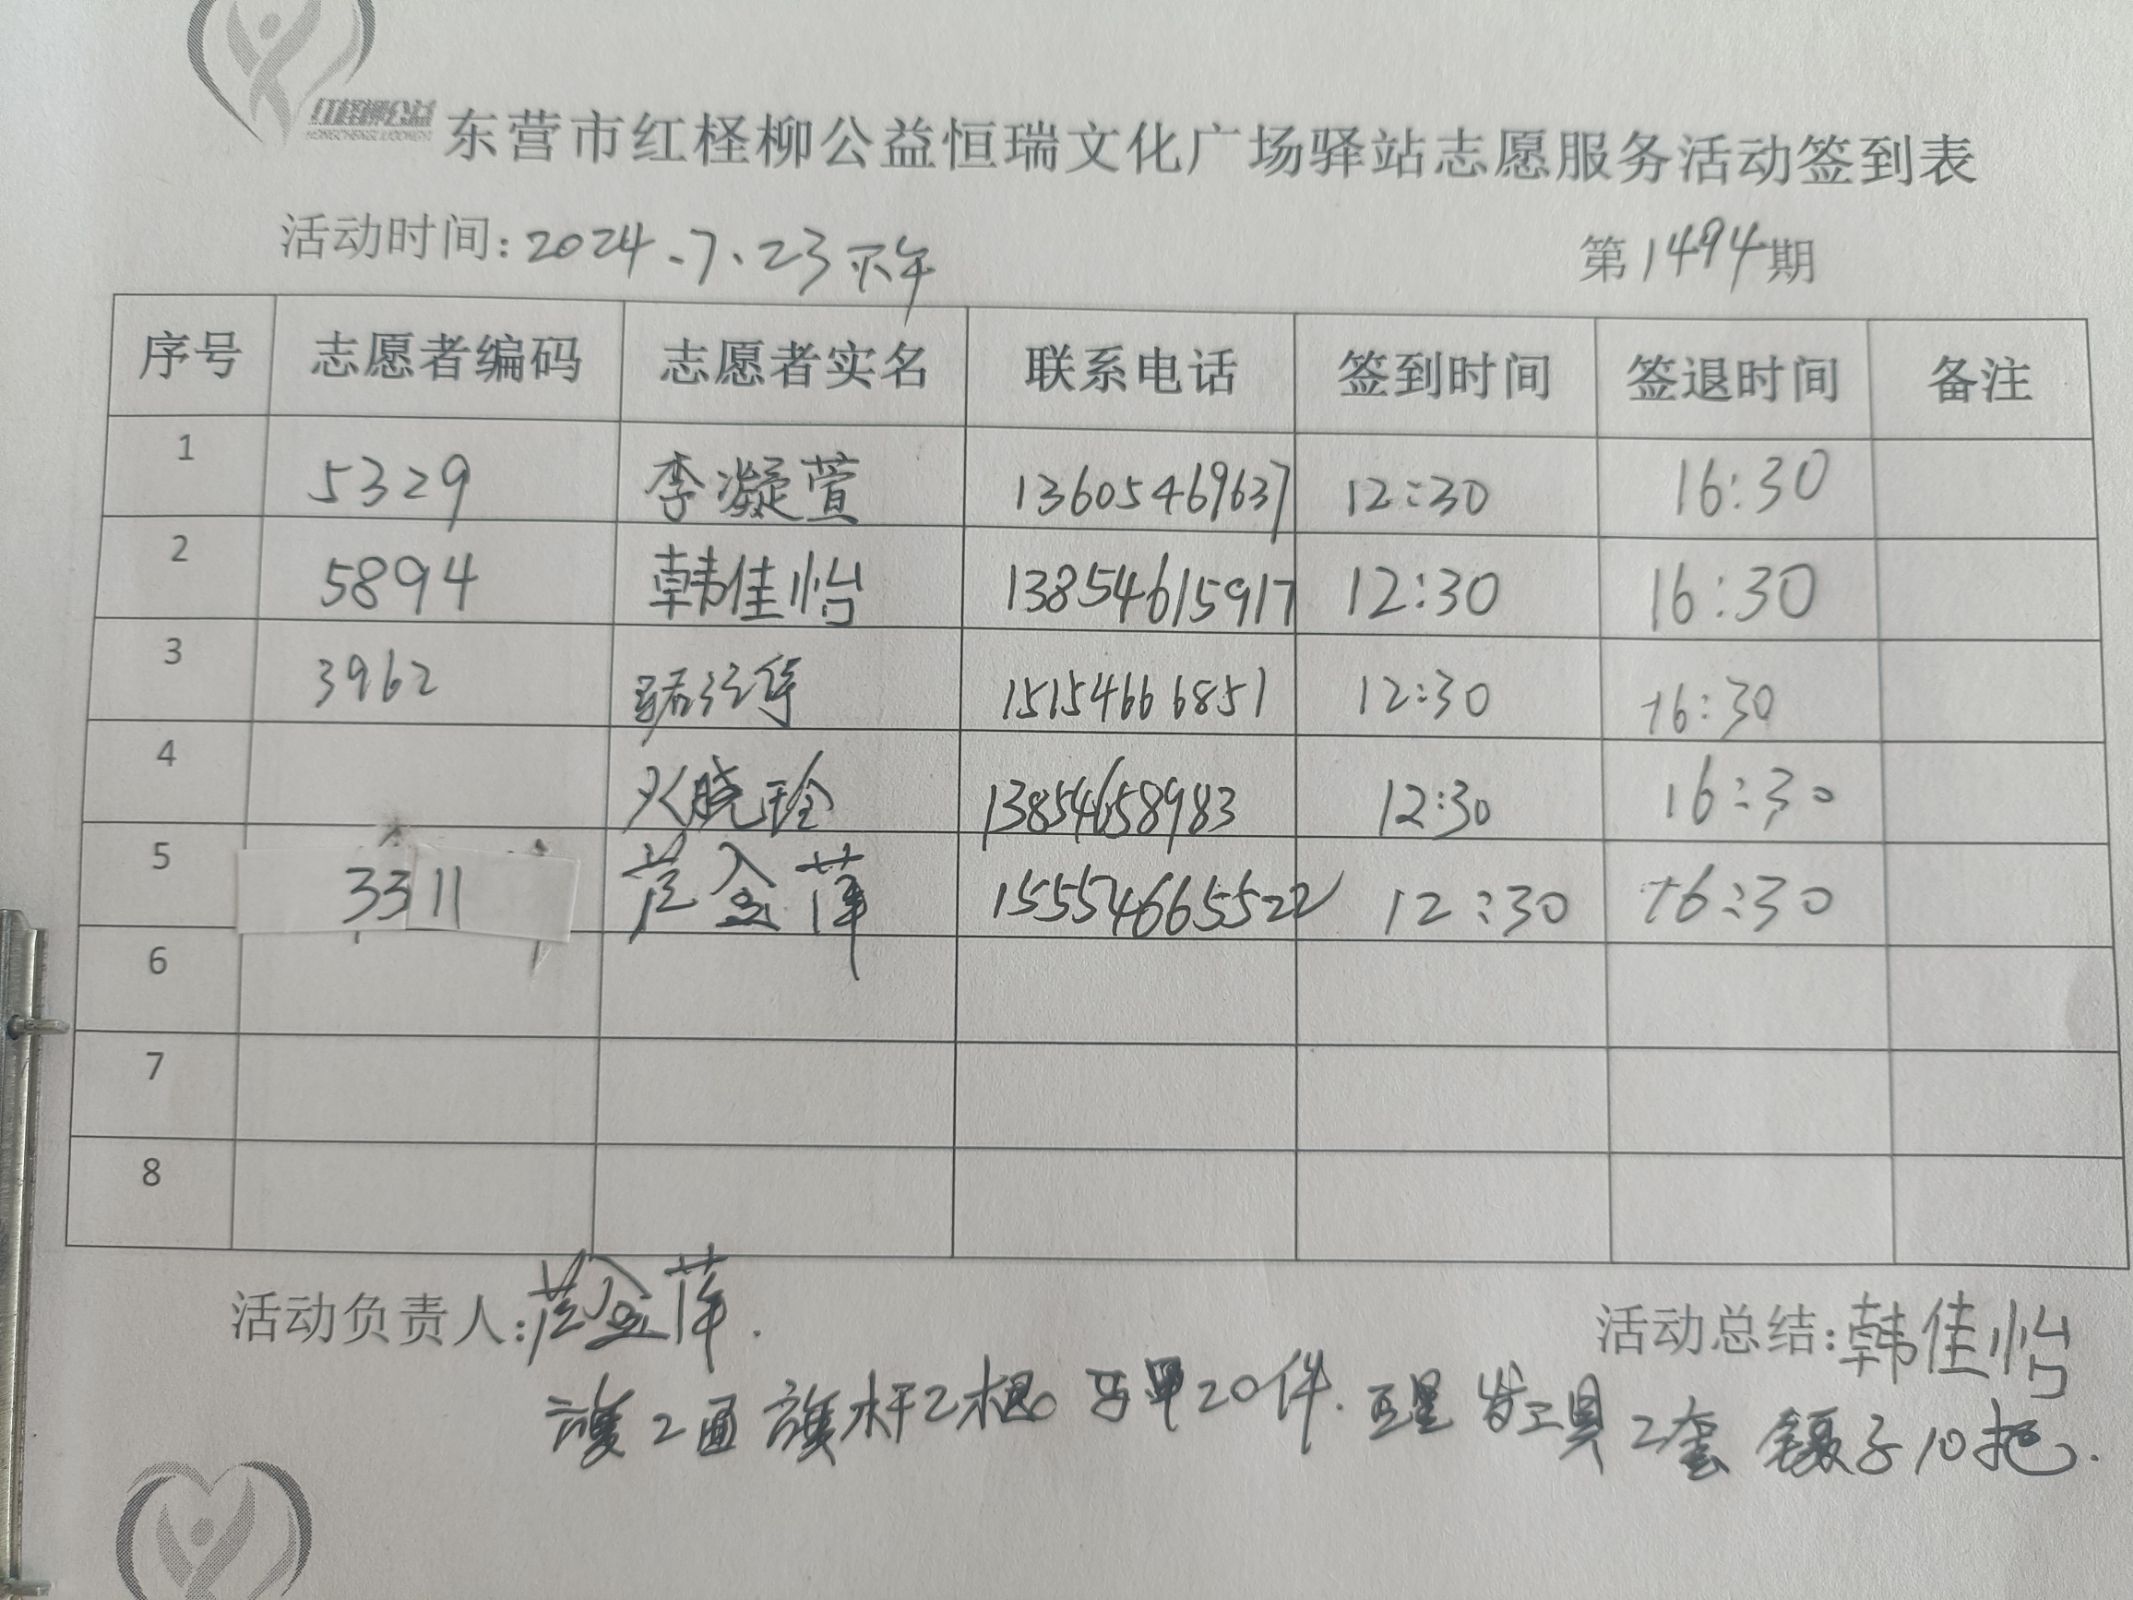 红柽柳公益
HONGCHENGLIUGONGYI
东营市红柽柳公益恒瑞文化广场驿站志愿服务活动签到表
活动时间:2024.7.23下午 第1494期
序号 志愿者编码 志愿者实名 联系电话 签到时间 签退时间 备注
1 5329 李凝萱 13605469637 12:30 16:30
2 5894 韩佳怡 13854615917 12:30 16:30
3 3962 15154666851 12:30 16:30
4 晓玲 13854658983 12:30 16:30
5 3311 金萍 15554665522 12:30 16:30
6
7
8
活动负责人: 金萍. 活动总结:韩佳怡
旗2面 旗杆2根 马甲20件. 工具2套 镊子10把.